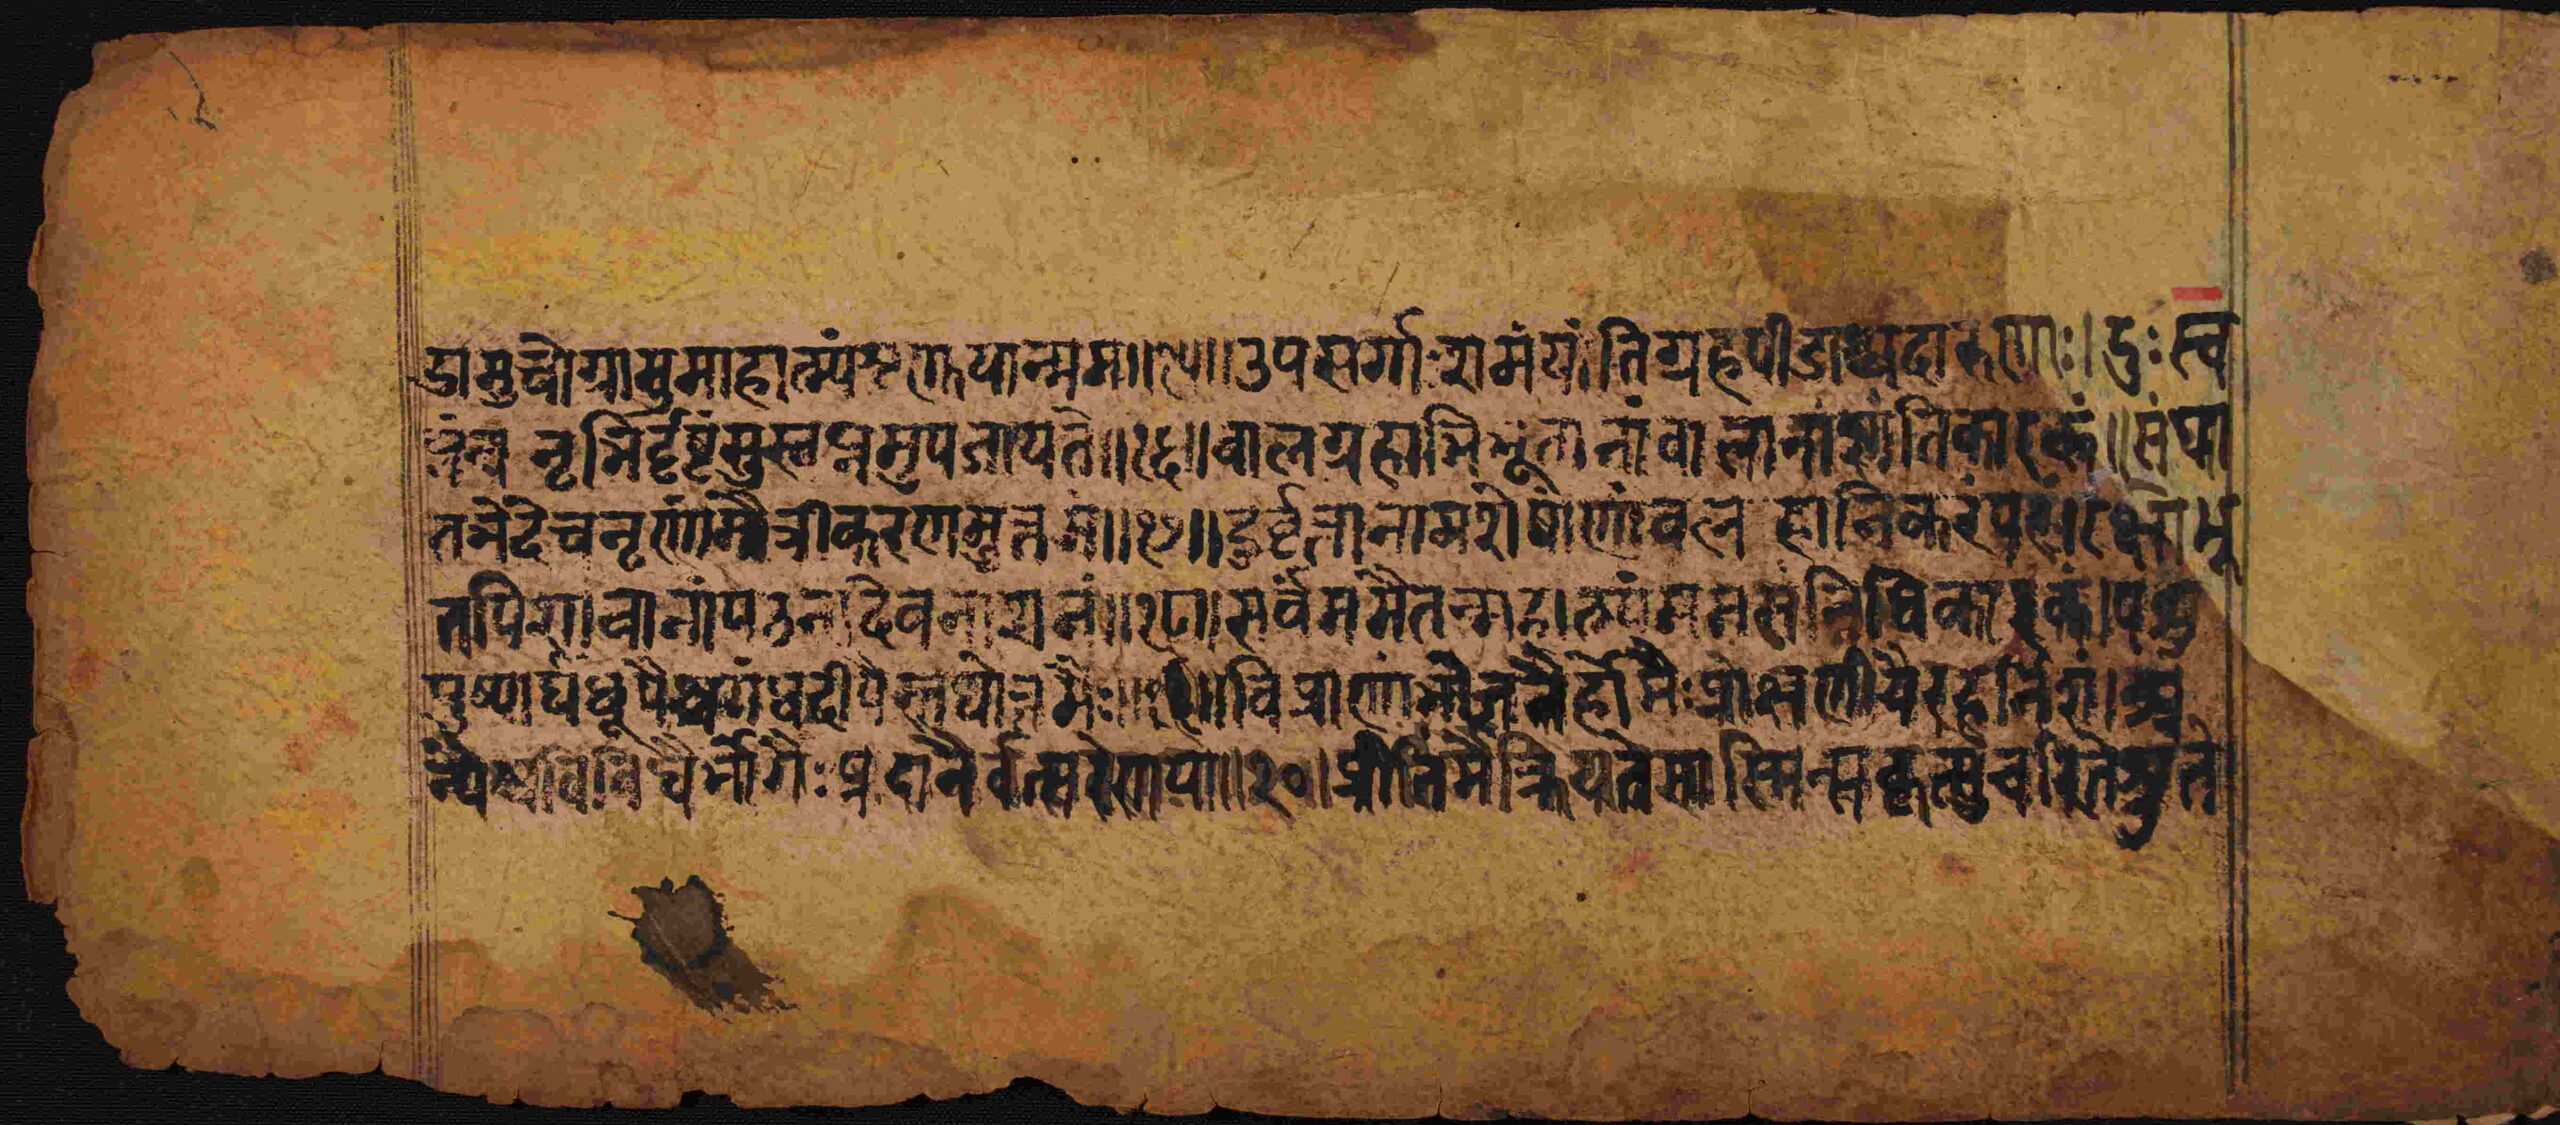 डासुचोग्रासुमाहात्म्यंशृणुयान्मम॥१५॥उपसर्गाःशमंयांतिग्रहपीडाश्चदारुणाः।दुःस्व
प्नंच नृभिर्दृष्टंसुस्वप्नमुपजायते॥१६॥वालग्रहाभिभूतानांवालानांशांतिकारकं॥संघा
तभेदेचनृणांमैत्रीकरणमुत्तमं॥१७॥दुर्वृत्तानामशेषाणांवलहानिकरंपरं।रक्षोभू
तपिशाचानांपठनादेवनाशनं॥१८॥सर्वंममैतन्माहात्म्यंममसंनिधिकारकं।पशु
पुष्पार्घधूपैश्चगंधदीपैस्तथोत्तमैः॥१९॥विप्राणांभोजनैर्होमैःप्रोक्षणीयैरहर्निशं।अ
न्यैश्चविविधैर्भोगैःप्रदानैर्वत्सरेणया॥२०॥प्रीतिर्मेक्रियतेसास्मिन्सकृत्सुचरितेश्रुते